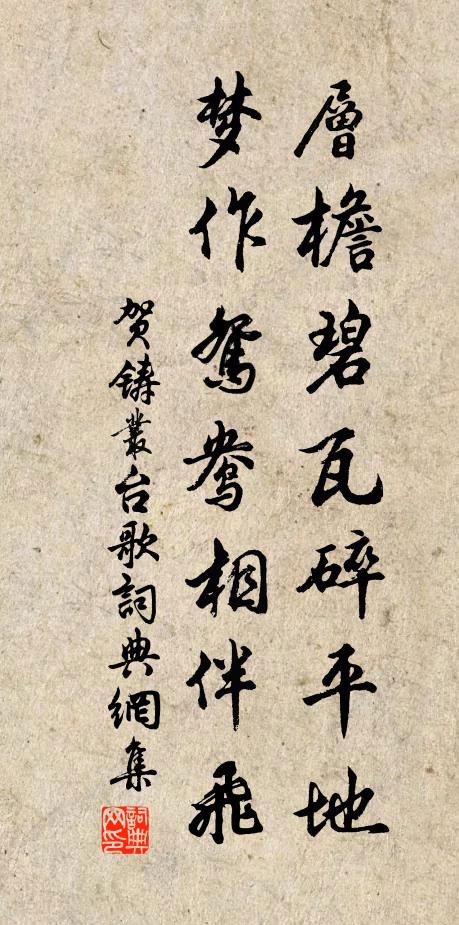 層檐碧瓦碎平地
梦作鴛鴦相伴飛
贺鑄叢台歌詞典網集
詞典網印